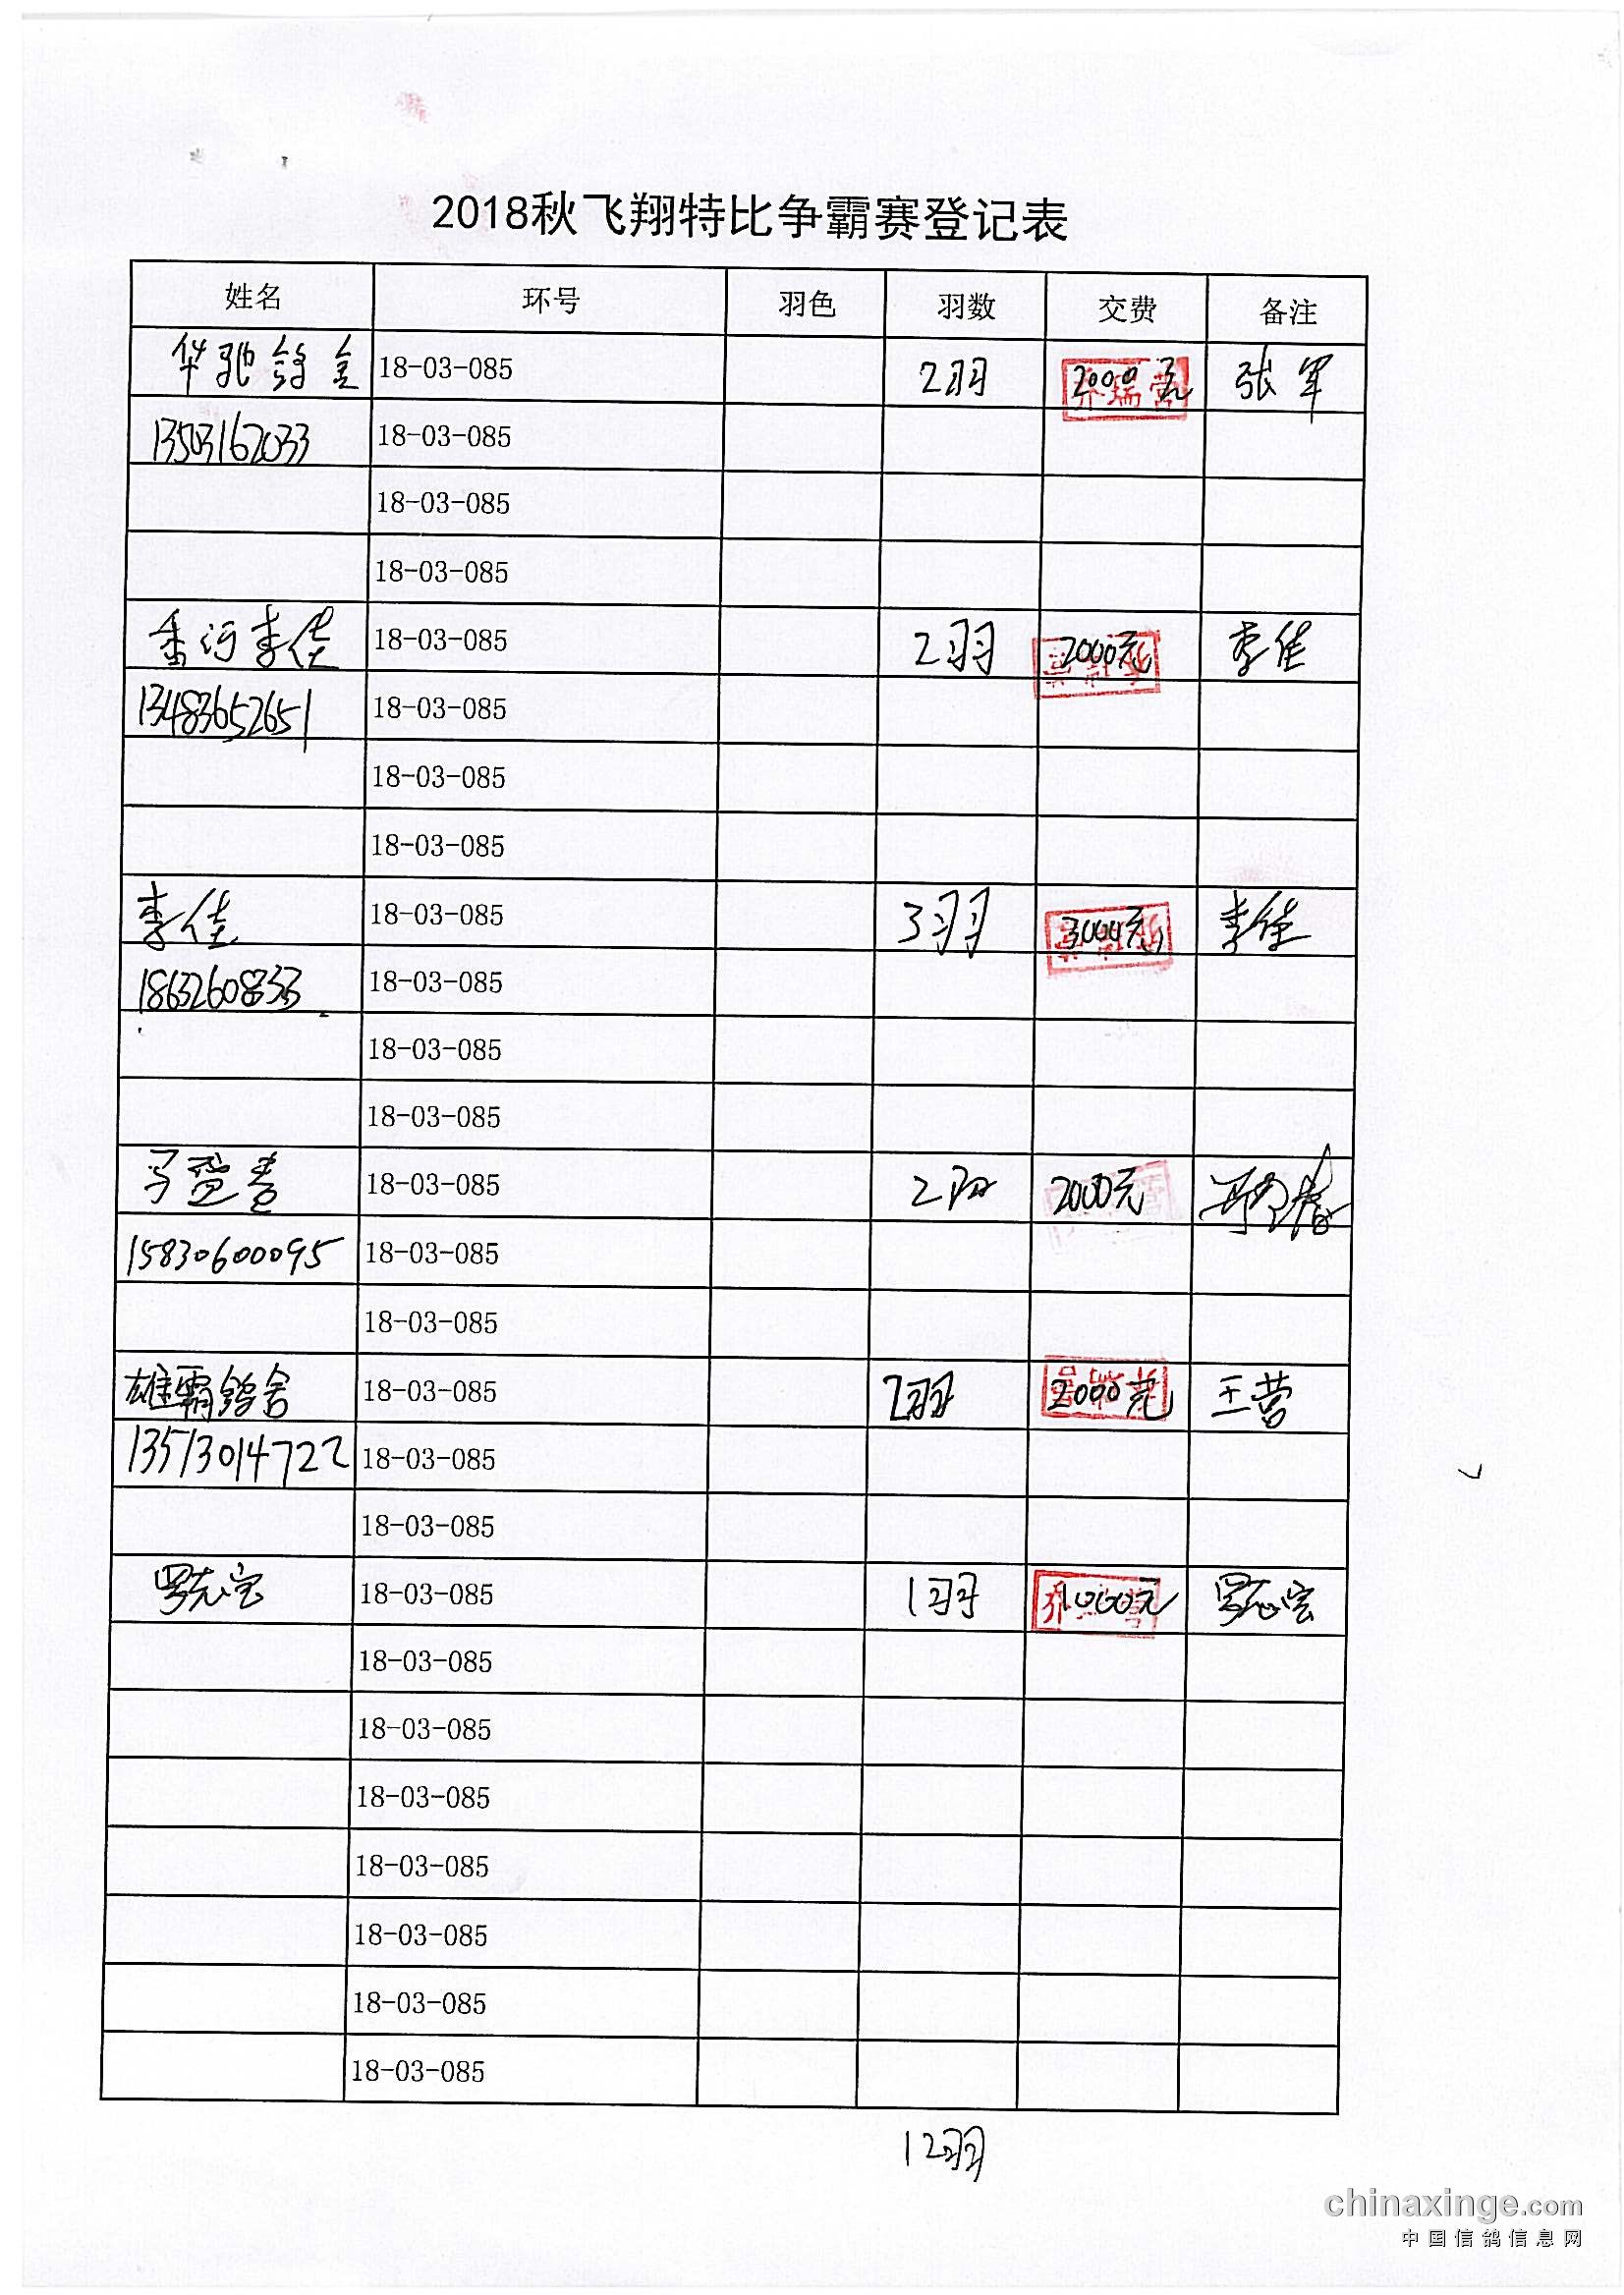 2018秋飞翔特比争霸赛登记表
姓名 环号 羽色 羽数 交费 备注
华驰鸽舍 18-03-085 2羽 2000元 张军
13503162033 18-03-085
18-03-085
18-03-085
香河李佳 18-03-085 2羽 2000元 李佳
13483652651 18-03-085
18-03-085
18-03-085
李佳 18-03-085 3羽 3000元 李佳
18632608833 18-03-085
18-03-085
18-03-085
马登春 18-03-085 2羽 2000元
15830600095 18-03-085
18-03-085
雄霸鸽舍 18-03-085 2羽 2000元 王营
13513014722 18-03-085
18-03-085
罗志宝 18-03-085 1羽 1000元 罗志宝
18-03-085
18-03-085
18-03-085
18-03-085
18-03-085
18-03-085
18-03-085
12羽
chinaxinge.com
中国信鸽信息网